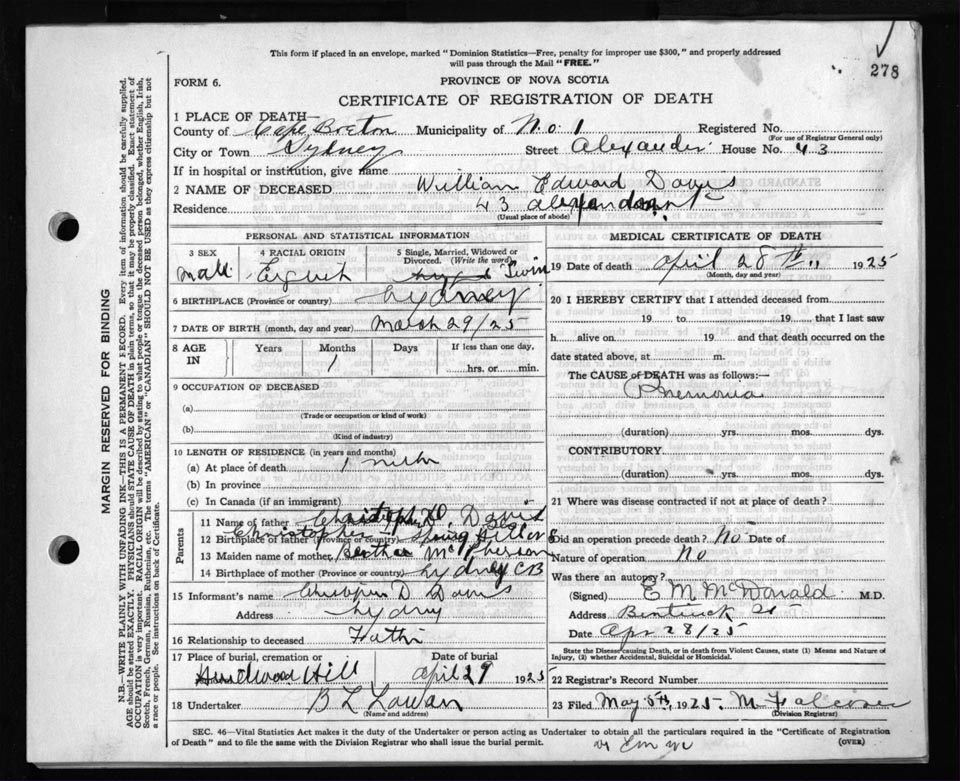 This form if placed in an envelope, marked "Dominion Statistics—Free, penalty for improper use $300," and properly addressed
will pass through the Mail "FREE."
278
FORM 6.
PROVINCE OF NOVA SCOTIA
CERTIFICATE OF REGISTRATION OF DEATH
1 PLACE OF DEATH—
County of Cape Breton Municipality of No. 1 Registered No.
(For use of Registrar General only)
City or Town Sydney Street Alexander House No. 43
If in hospital or institution, give name
2 NAME OF DECEASED William Edward Davis
Residence 43
(Usual place of abode)
PERSONAL AND STATISTICAL INFORMATION
3 SEX
male
4 RACIAL ORIGIN
English
5 Single, Married, Widowed or
Divorced. (Write the word)
Twin
6 BIRTHPLACE (Province or country) Sydney
7 DATE OF BIRTH (month, day and year) March 29/25
8 AGE IN
Years
Months
1
Days
If less than one day,
hrs. or min.
9 OCCUPATION OF DECEASED
(a)
(Trade or occupation or kind of work)
(b)
(Kind of industry)
10 LENGTH OF RESIDENCE (in years and months)
(a) At place of death 1
(b) In province
(c) In Canada (if an immigrant)
Parents
11 Name of father D. Davis
12 Birthplace of father (Province or country)
13 Maiden name of mother Bertha McPherson
14 Birthplace of mother (Province or country) Sydney CB
15 Informant's name D Davis
Address Sydney
16 Relationship to deceased Father
17 Place of burial, cremation or
Hardwood Hill
Date of burial
April 29 1925
18 Undertaker B L
(Name and address)
MEDICAL CERTIFICATE OF DEATH
19 Date of death April 28th 1925
(Month, day and year)
20 I HEREBY CERTIFY that I attended deceased from
19 to 19 that I last saw
h alive on 19 and that death occurred on the
date stated above, at m.
The CAUSE of DEATH was as follows:—
Pnemonia
(duration) yrs. mos. dys.
CONTRIBUTORY
(duration) yrs. mos. dys.
21 Where was disease contracted if not at place of death?
Did an operation precede death? No Date of
Nature of operation No
Was there an autopsy?
(Signed) E M McDonald M.D.
Address
Date Apr 28/25
State the Disease causing Death, or in death from Violent Causes, state (1) Means and Nature of
Injury, (2) whether Accidental, Suicidal or Homicidal.
22 Registrar's Record Number
23 Filed May 5th, 1925.
(Division Registrar)
SEC. 46—Vital Statistics Act makes it the duty of the Undertaker or person acting as Undertaker to obtain all the particulars required in the "Certificate of Registration
of Death" and to file the same with the Division Registrar who shall issue the burial permit.
(OVER)
MARGIN RESERVED FOR BINDING
N.B.—WRITE PLAINLY WITH UNFADING INK—THIS IS A PERMANENT RECORD. Every item of information should be carefully supplied.
AGE should be stated EXACTLY. PHYSICIANS should STATE CAUSE OF DEATH in plain terms, so that it may be properly classified. Exact statement of
OCCUPATION is very important. RACIAL ORIGIN will be described by stating to what people or tongue the deceased person belonged, whether English, Irish,
Scotch, French, German, Russian, Ruthenian, etc. The terms "AMERICAN" or "CANADIAN" SHOULD NOT BE USED as they express citizenship but not
a race or people. See instructions on back of Certificate.